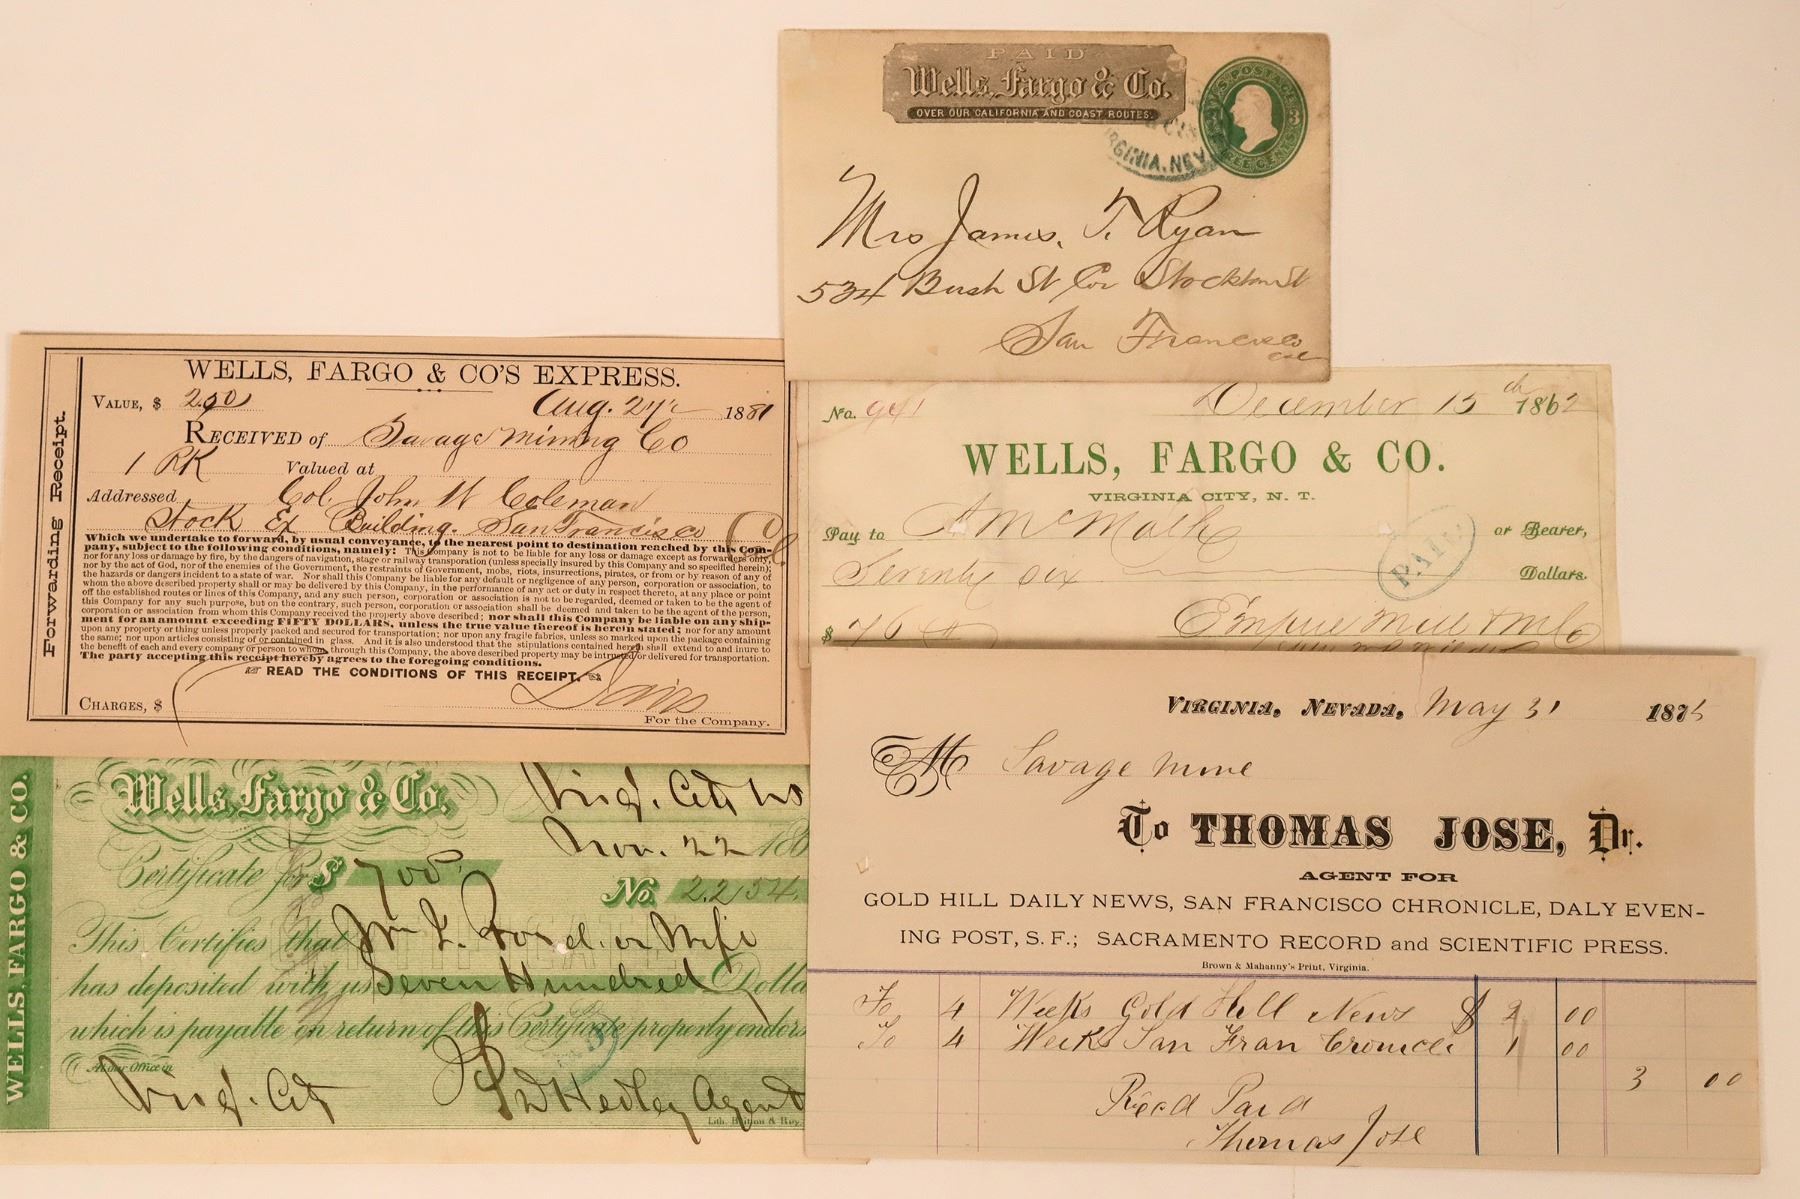 PAID
Wells, Fargo & Co.
OVER OUR CALIFORNIA AND COAST ROUTES.
U.S. POSTAGE
3
THREE CENTS
VIRGINIA, NEV
Mrs James. T. Ryan
534 Bush St Cor Stockton St
San Francisco
Cal
Forwarding Receipt.
WELLS, FARGO & CO'S EXPRESS.
VALUE, $ 200 Aug. 24 1881
RECEIVED of Savage Mining Co
1 PK Valued at
Addressed Col. John W Coleman
Stock Ex Building. San Francisco
Which we undertake to forward, by usual conveyance, to the nearest point to destination reached by this Com-
pany, subject to the following conditions, namely: This Company is not to be liable for any loss or damage except as forwarders only,
nor for any loss or damage by fire, by the dangers of navigation, stage or railway transportation (unless specially insured by this Company and so specified herein);
nor by the act of God, nor of the enemies of the Government, the restraints of Government, mobs, riots, insurrections, pirates, or from or by reason of any of
the hazards or dangers incident to a state of war. Nor shall this Company be liable for any default or negligence of any person, corporation or association, to
whom the above described property shall or may be delivered by this Company, in the performance of any act or duty in respect thereto, at any place or point
off the established routes or lines of this Company, and any such person, corporation or association is not to be regarded, deemed or taken to be the agent of
this Company for any such purpose, but on the contrary, such person, corporation or association shall be deemed and taken to be the agent of the person,
corporation or association from whom this Company received the property above described; nor shall this Company be liable on any ship-
ment for an amount exceeding FIFTY DOLLARS, unless the true value thereof is herein stated; nor for any amount
upon any property or thing unless properly packed and secured for transportation; nor upon any fragile fabrics, unless so marked upon the package containing
the same; nor upon articles consisting of or contained in glass. And it is also understood that the stipulations contained herein shall extend to and inure to
the benefit of each and every company or person to whom, through this Company, the above described property may be intrusted or delivered for transportation.
The party accepting this receipt hereby agrees to the foregoing conditions.
READ THE CONDITIONS OF THIS RECEIPT.
CHARGES, $
For the Company.
No. 941 December 15th 1862
WELLS, FARGO & CO.
VIRGINIA CITY, N. T.
Pay to A McMath or Bearer,
PAID
Seventy six Dollars.
$ 76 Empire Mill & M Co
WELLS, FARGO & CO.
Wells, Fargo & Co.
Virg. City
Nov. 22 186
Certificate for $ 700
No. 22154
This Certifies that Wm L. Ford or Wife
has deposited with us Seven Hundred Dolla
which is payable on return of this Certificate properly endors
At our Office in
Virg. City Hedley Agent
Lith. Britton & Rey
VIRGINIA, NEVADA, May 31 1875
M Savage Mine
To THOMAS JOSE, Dr.
AGENT FOR
GOLD HILL DAILY NEWS, SAN FRANCISCO CHRONICLE, DALY EVEN-
ING POST, S. F.; SACRAMENTO RECORD and SCIENTIFIC PRESS.
Brown & Mahanny's Print, Virginia.
To 4 Weeks Gold Hill News $ 2 00
To 4 Weeks San Fran Cronicle 1 00
3 00
Recd Paid
Thomas Jose